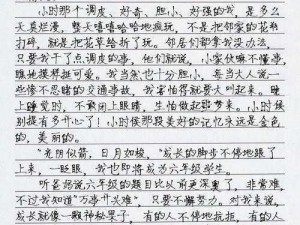 小时那个调皮、好奇、胆小、好强的我,是多么
天真烂漫,整天嘻嘻哈哈地疯玩,不是把邻家的花瓶
打碎,就是把花草给折了玩。邻居们都拿我没办法,
只要我干了点调皮的事,他们就说,小家伙嘛不懂事,
瞧她摸得挺可爱。我当然也十分胆小,每当大人说一
些像不思睹的交通事故,我害怕得就要大叫起来。晚
上睡觉时,不敢闭上眼睛,生怕做起噩梦来。小时候
别提有多开心了!小时候那段美好的记忆永远是金色
的,美丽的。
“光阴似箭,日月如梭,”成长的脚步不停地跟了
上来,一眨眼,我也即将成为六年级学生。
听爸妈说六年级的题目比以前更深奥了,非常难,
不过我知道“万事开头难”,只要不懈努力。对我来说,
成长就像一颗神秘果子,有的人不停地抗拒,有的人